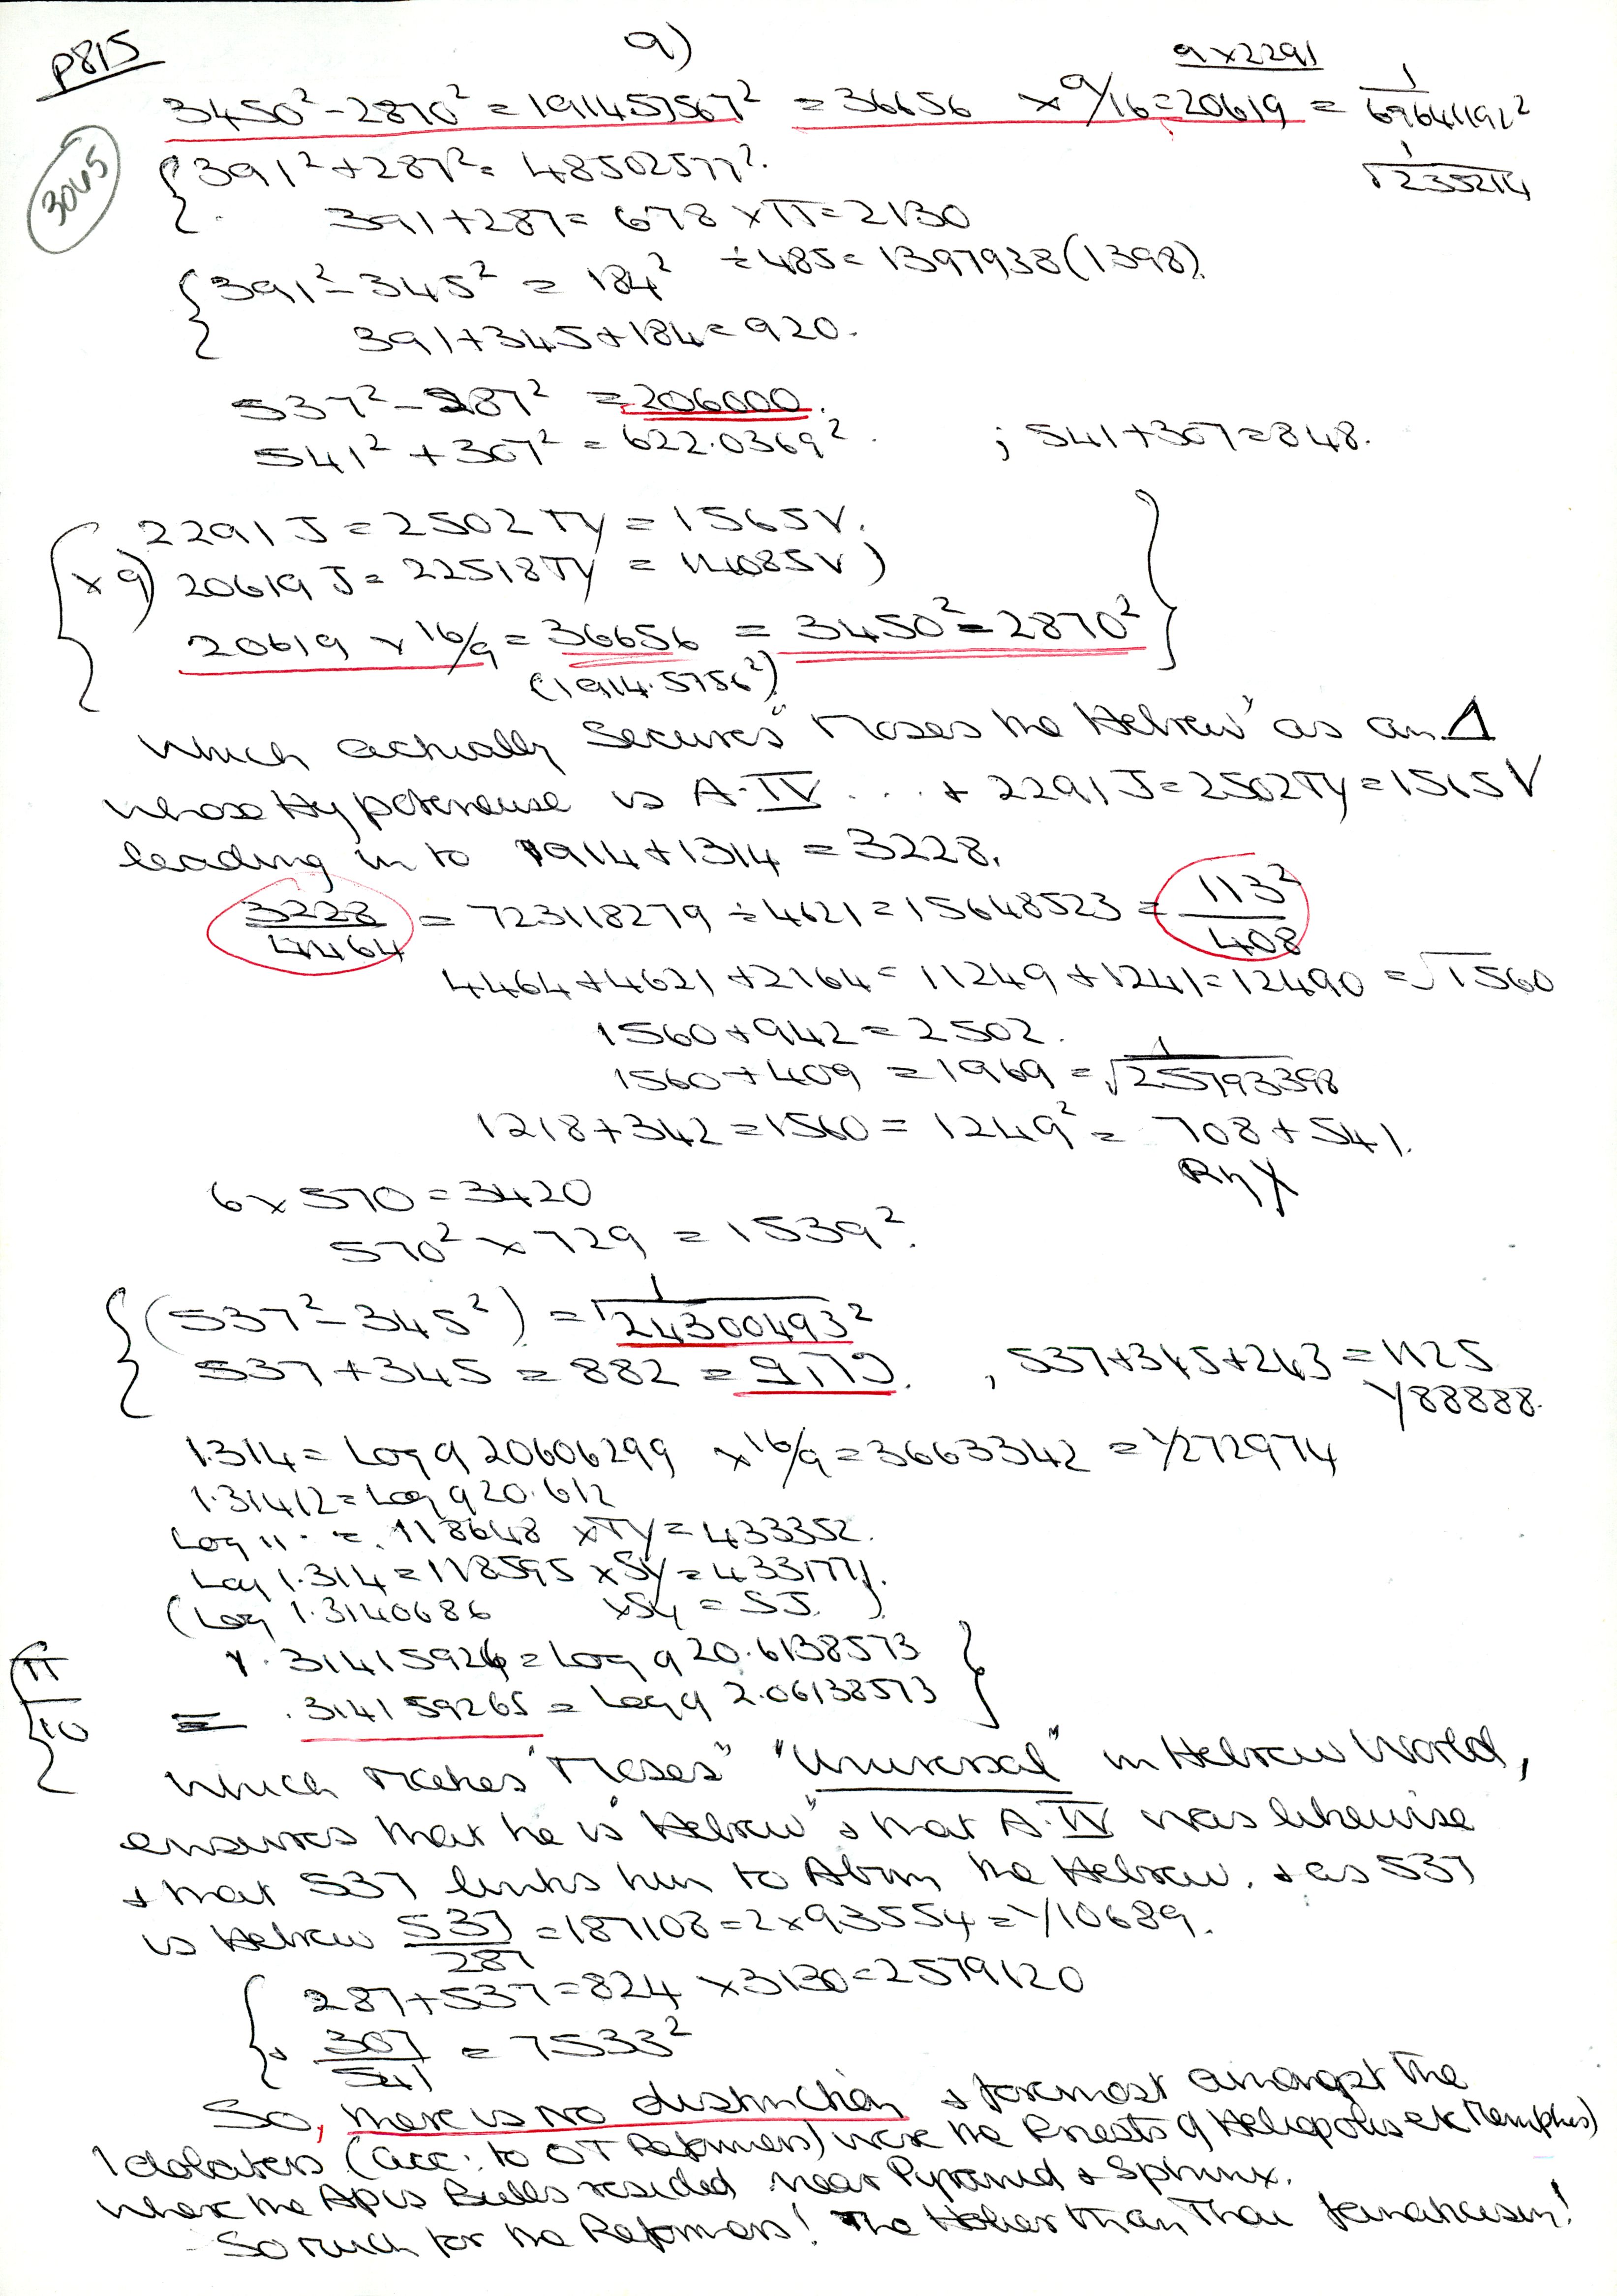 P815
9)
9x2291
3450² - 2870² = 191457567² = 36656 x 9/16 = 20619 = 1/69641192²
3045
{391² + 287² = 48502577².
1/√235214
391 + 287 = 678 x π = 2130
÷ 485 = 1397938 (1398).
{391² - 345² = 184²
391 + 345 + 184 = 920.
537² - 287² = 206000.
541² + 307² = 622.0369². ; 541 + 307 = 848.
2291 J = 2502 TY = 1565 V.
x 9) 20619 J = 22518 TY = 14085 V)
20619 x 16/9 = 36656 = 3450² - 2870²
(1914.5756²)
Which actually secures "Moses the Hebrew" as an Δ
whose Hypotenuse is A.IV ... + 2291 J = 2502 TY = 1565 V
leading in to 1914 + 1314 = 3228.
3228/4464 = 723118279 ÷ 4621 = 15648523 = 113²/408
4464 + 4621 + 2164 = 11249 + 1241 = 12490 = √1560
1560 + 942 = 2502.
1560 + 409 = 1969 = 1/√25793398
1218 + 342 = 1560 = 1249² = 708 + 541.
6 x 570 = 3420
570² x 729 = 1539².
{(537² - 345²) = 1/√24300493²
537 + 345 = 882 = , 537 + 345 + 243 = 1125
Y88888.
1.314 = Log 9 20606299 x 16/9 = 3663342 = Y272974
1.31412 = Log 9 20.612
Log " = .118648 x TY = 433352.
Log 1.314 = 118595 x SY = 433177).
(Log 1.3140686 x SY = SJ.)
1.314159264 = Log 9 20.6138573
π/10 = .314159265 = Log 9 2.06138573
which makes "Moses" "Universal" in Hebrew World,
ensures that he is "Hebrew" & that A.IV was likewise
& that 537 links him to Abm the Hebrew. & as 537
is Hebrew 537/287 = 187108 = 2 x 93554 = Y10689.
{287 + 537 = 824 x 3130 = 2579120
& 307/541 = 7533²
So, there is no distinction & foremost amongst the
Idolaters (acc: to OT Reformers) were the Priests of Heliopolis etc Memphis)
where the Apis Bulls resided near Pyramid & Sphinx.
So much for the Reformers! The Holier than Thou fanaticism!